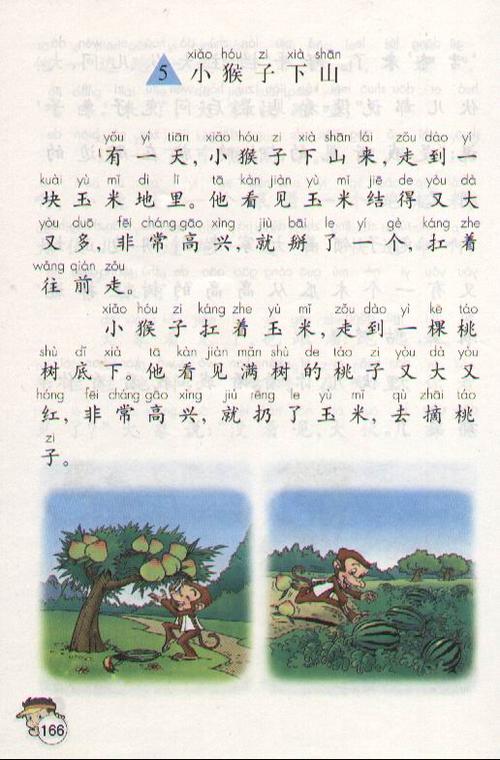 xiǎo hóu zi xià shān
5 小猴子下山
yǒu yì tiān xiǎo hóu zi xià shān lái zǒu dào yí
有一天,小猴子下山来,走到一
kuài yù mǐ dì lǐ tā kàn jiàn yù mǐ jiē de yòu dà
块玉米地里。他看见玉米结得又大
yòu duō fēi cháng gāo xìng jiù bāi le yí gè káng zhe
又多,非常高兴,就掰了一个,扛着
wǎng qián zǒu
往前走。
xiǎo hóu zi káng zhe yù mǐ zǒu dào yì kē táo
小猴子扛着玉米,走到一棵桃
shù dǐ xià tā kàn jiàn mǎn shù de táo zi yòu dà yòu
树底下。他看见满树的桃子又大又
hóng fēi cháng gāo xìng jiù rēng le yù mǐ qù zhāi táo
红,非常高兴,就扔了玉米,去摘桃
zi
子。
166